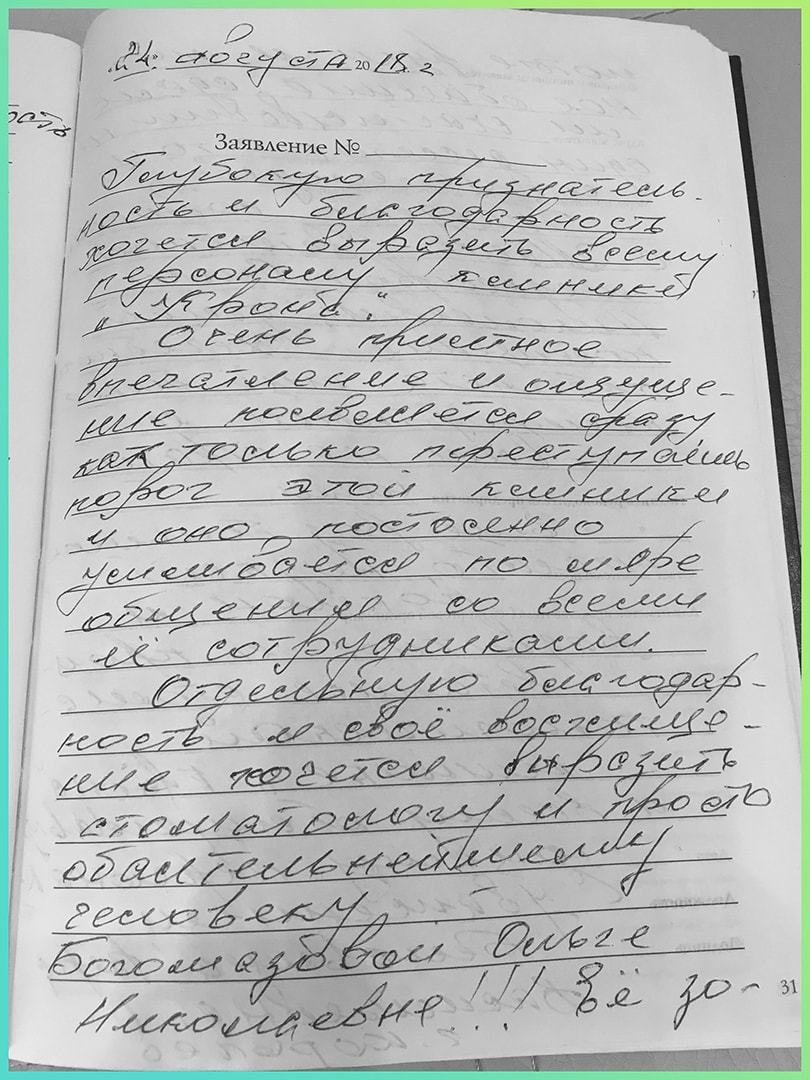 24. августа 2018 г
ость
Заявление №
Глубокую признатель-
ность и благодарность
хочется выразить всему
персоналу клиники
„Крона."
Очень приятное
впечатление и ощуще-
ние появляется сразу
как только переступаешь
порог этой клиники
и оно постоянно
усиливается по мере
общения со всеми
её сотрудниками.
Отдельную благодар-
ность и своё восхище-
ние хочется выразить
стоматологу и просто
обаятельнейшему
человеку
Богомазовой Ольге
Николаевне!!! Её зо-
31